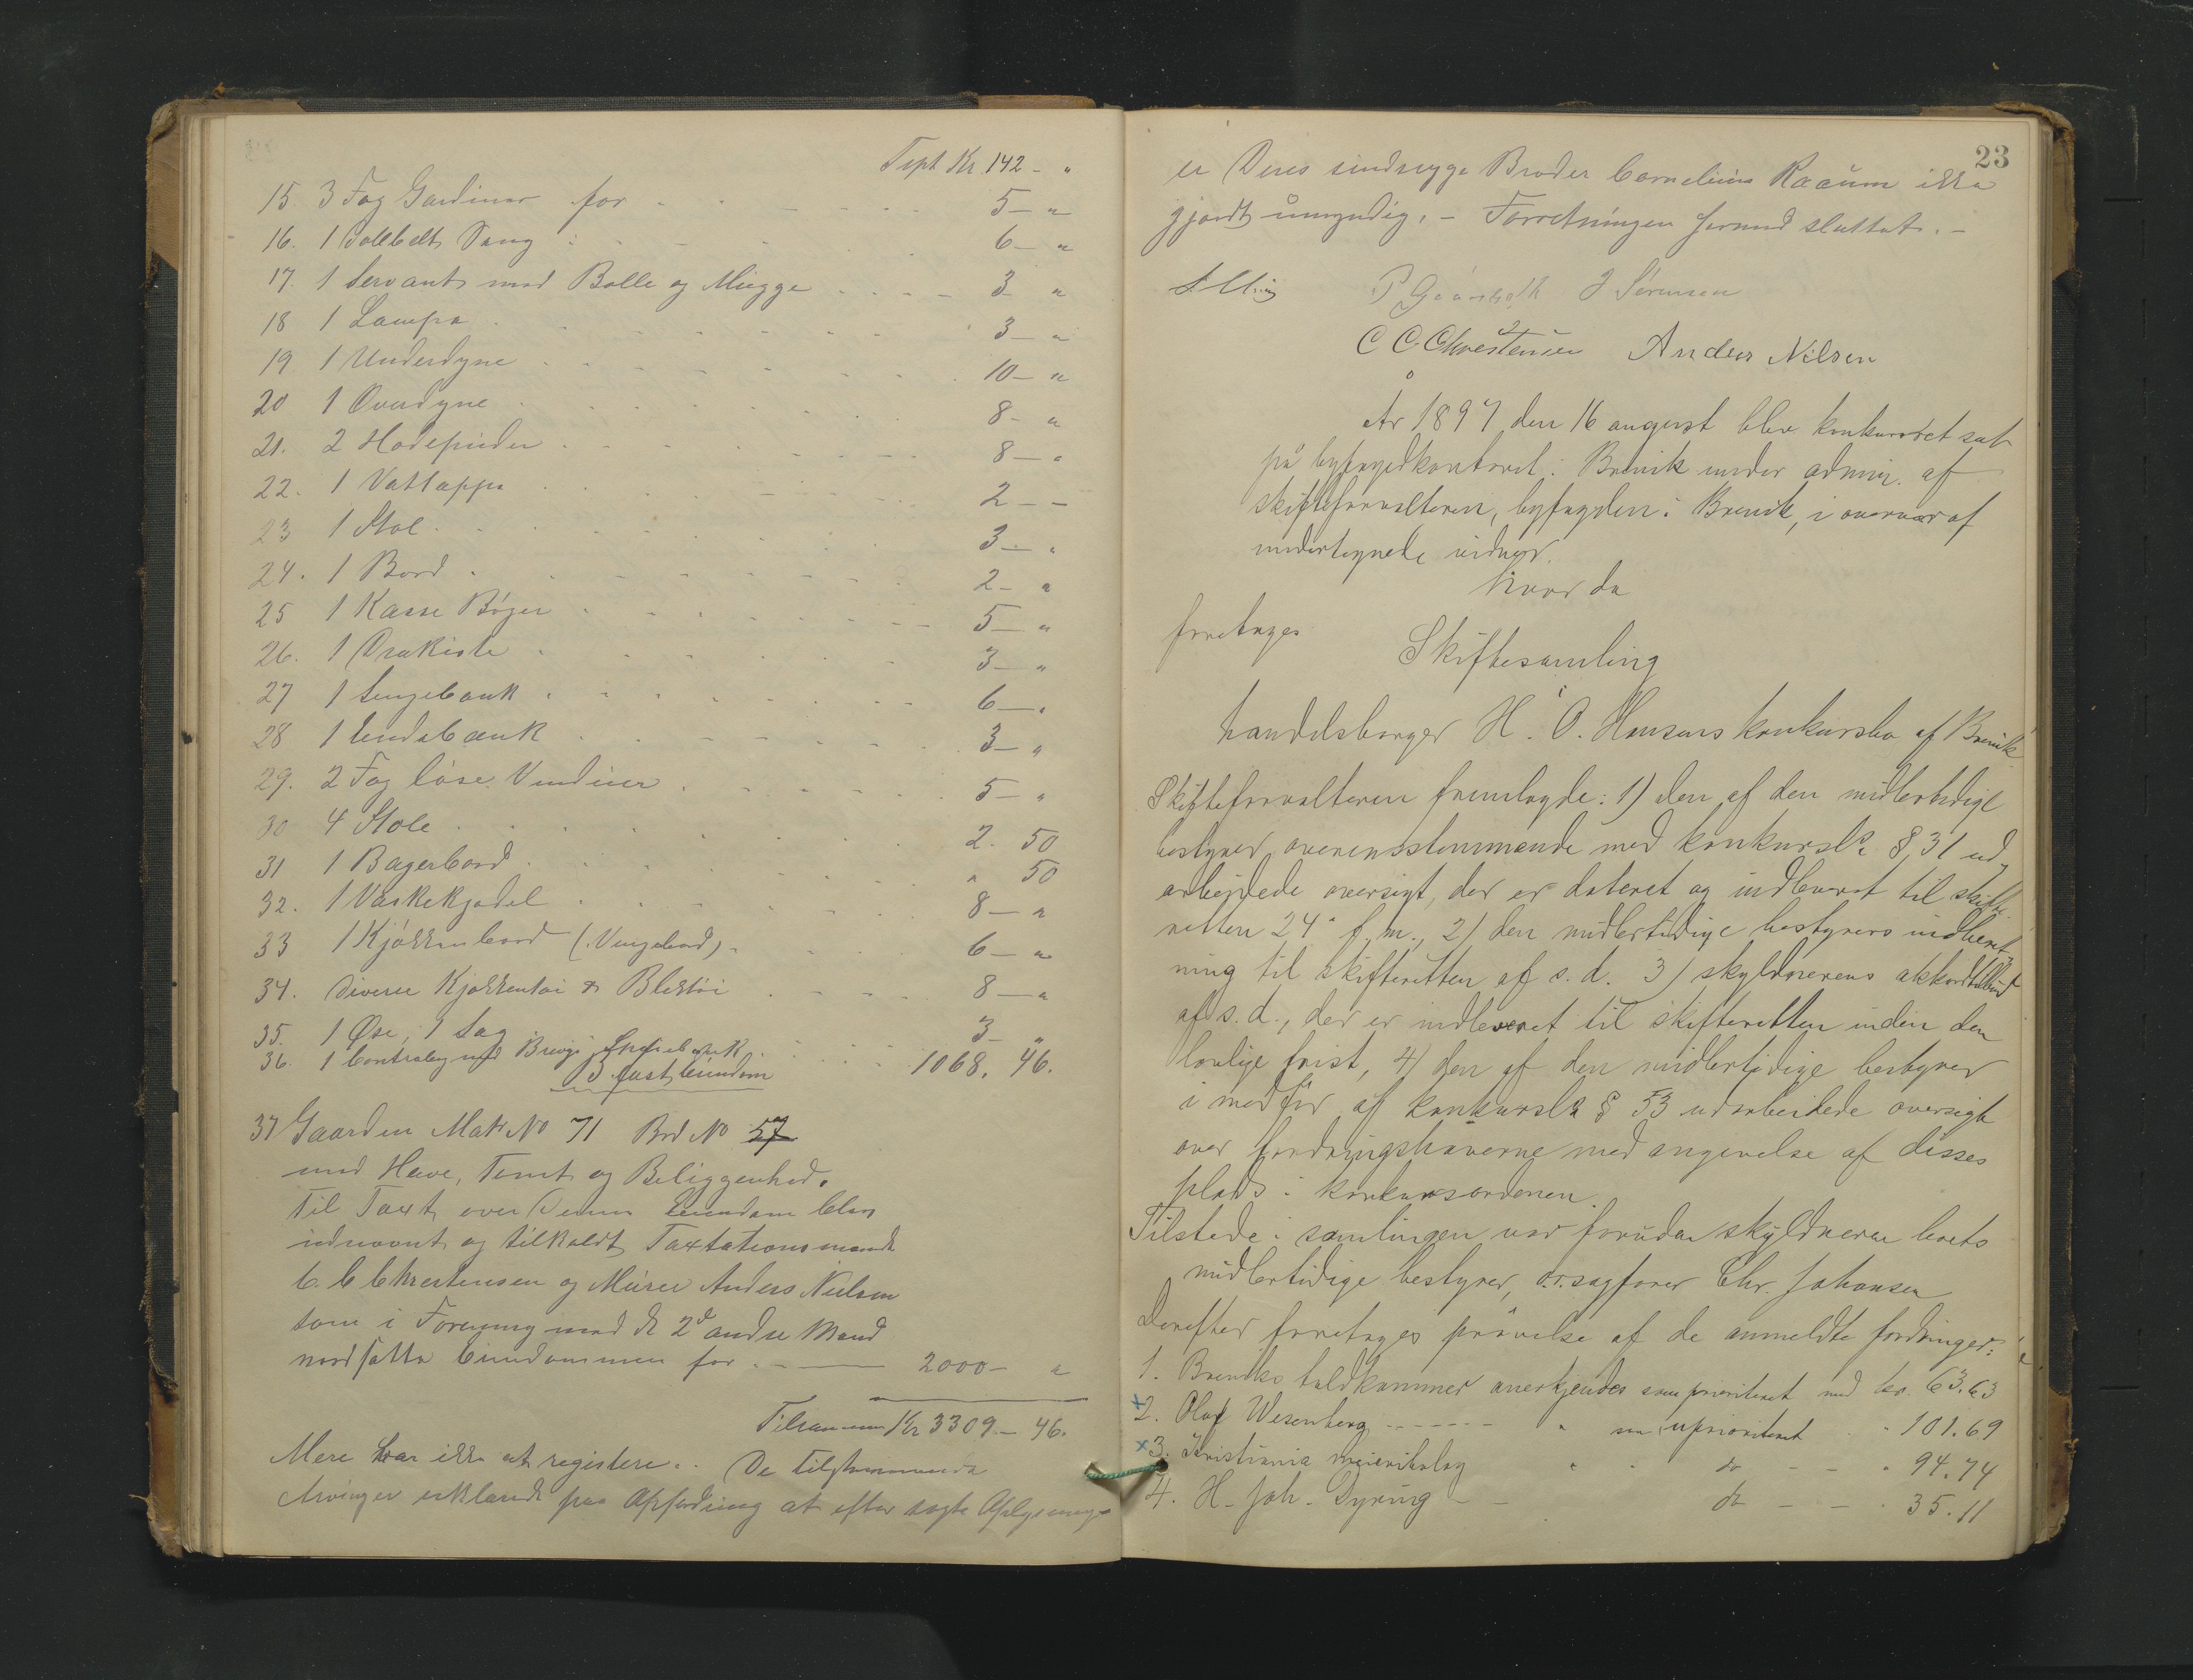 Tspt Kr. 142 - "
15. 3 Fag Gardiner for 5 - "
16. 1 dobbelt Seng 6 - "
17. 1 Servant med Bolle og Mugge 3 "
18 1 Lampe 3 - "
19 1 Underdyne 10 - "
20 1 Overdyne 8 - "
21. 2 Hodepuder 8 - "
22. 1 Vattæppe 2 - -
23 1 Stol 3 - "
24. 1 Bord 2 - "
25 1 Kasse Bøger 5 - "
26. 1 Dragkiste 3 - "
27 1 Sengebænk 6 - "
28 1 Endebænk 3 - "
29. 2 Fag løse Vinduer 5 - "
30 4 Stole 2. 50
31 1 Bagerbord " 50
32. 1 Vaskekjedel 8 - "
33 1 Kjøkkenbord (Vengebord) 6 - "
34. Diverse Kjøkkentøi & Blektøi 8 - "
35. 1 Øse, 1 Sag 3 - "
36. 1 Contrabog med Brevigs Sparebank 1068. 46.
I fast Eiendom
37 Gaarden Matr No 71 Brd No 57
med Have, Tomt og Beliggenhed.
Til Taxt over Denne Eiendom blev
udnævnt og tilkaldt Taxtationsmænd
C. C Chrestensen og Murer Anders Nielsen
som i Forening med de 2de andre Mænd
værdsatte Eiendommen for 2000 - "
Tilsammen Kr 3309. - 46.
Mere var ikke at registere. De tilstemmende
Arvinger erklærede paa Opfordring at efter sagte Oplysning
23
er Deres sindssyge Broder Cornelius Raaum ikke
gjordt umyndig. - Forretningen hermed sluttet. -
J Sørensen
C C Chrestensen Anders Nilsen
År 1897 den 16 august blev konkursret sat
på byfogedkontoret i Brevik under admin. af
skifteforvalteren, byfogden i Brevik, i overvær af
undertegnede vidner.
Hvor da
foretoges
Skiftesamling
i
handelsborger H. O. Hansens konkursbo af Brevik
Skifteforvalteren fremlagde: 1) den af den midlertidige
bestyrer overensstemmende med konkursl. § 31 ud-
arbejdede oversigt, der er dateret og indleveret til skifte-
retten 24 f. m., 2) den midlertidige bestyrers indberet-
ning til skifteretten af s. d. 3) skyldnerens akkordtilbud
af s. d., der er indleveret til skifteretten inden den
lovlige frist, 4) den af den midlertidige bestyrer
i medfør af konkursl. § 53 udarbeidede oversigt
over fordringshaverne med angivelse af disses
plads i konkursordenen.
Tilstede i samlingen var foruden skyldneren boets
midlertidige bestyrer, o.r.sagfører Chr. Johansen
Derefter foretoges prøvelse af de anmeldte fordringer:
1. Breviks toldkammer anerkjendes som prioriteret med kr. 63.63
2. Olaf Wesenberg " som uprioriteret " 101.69
3. Kristiania meieribolag " " do - - " 94.74
4. H. Joh. Dyring - - do - - " 35.11